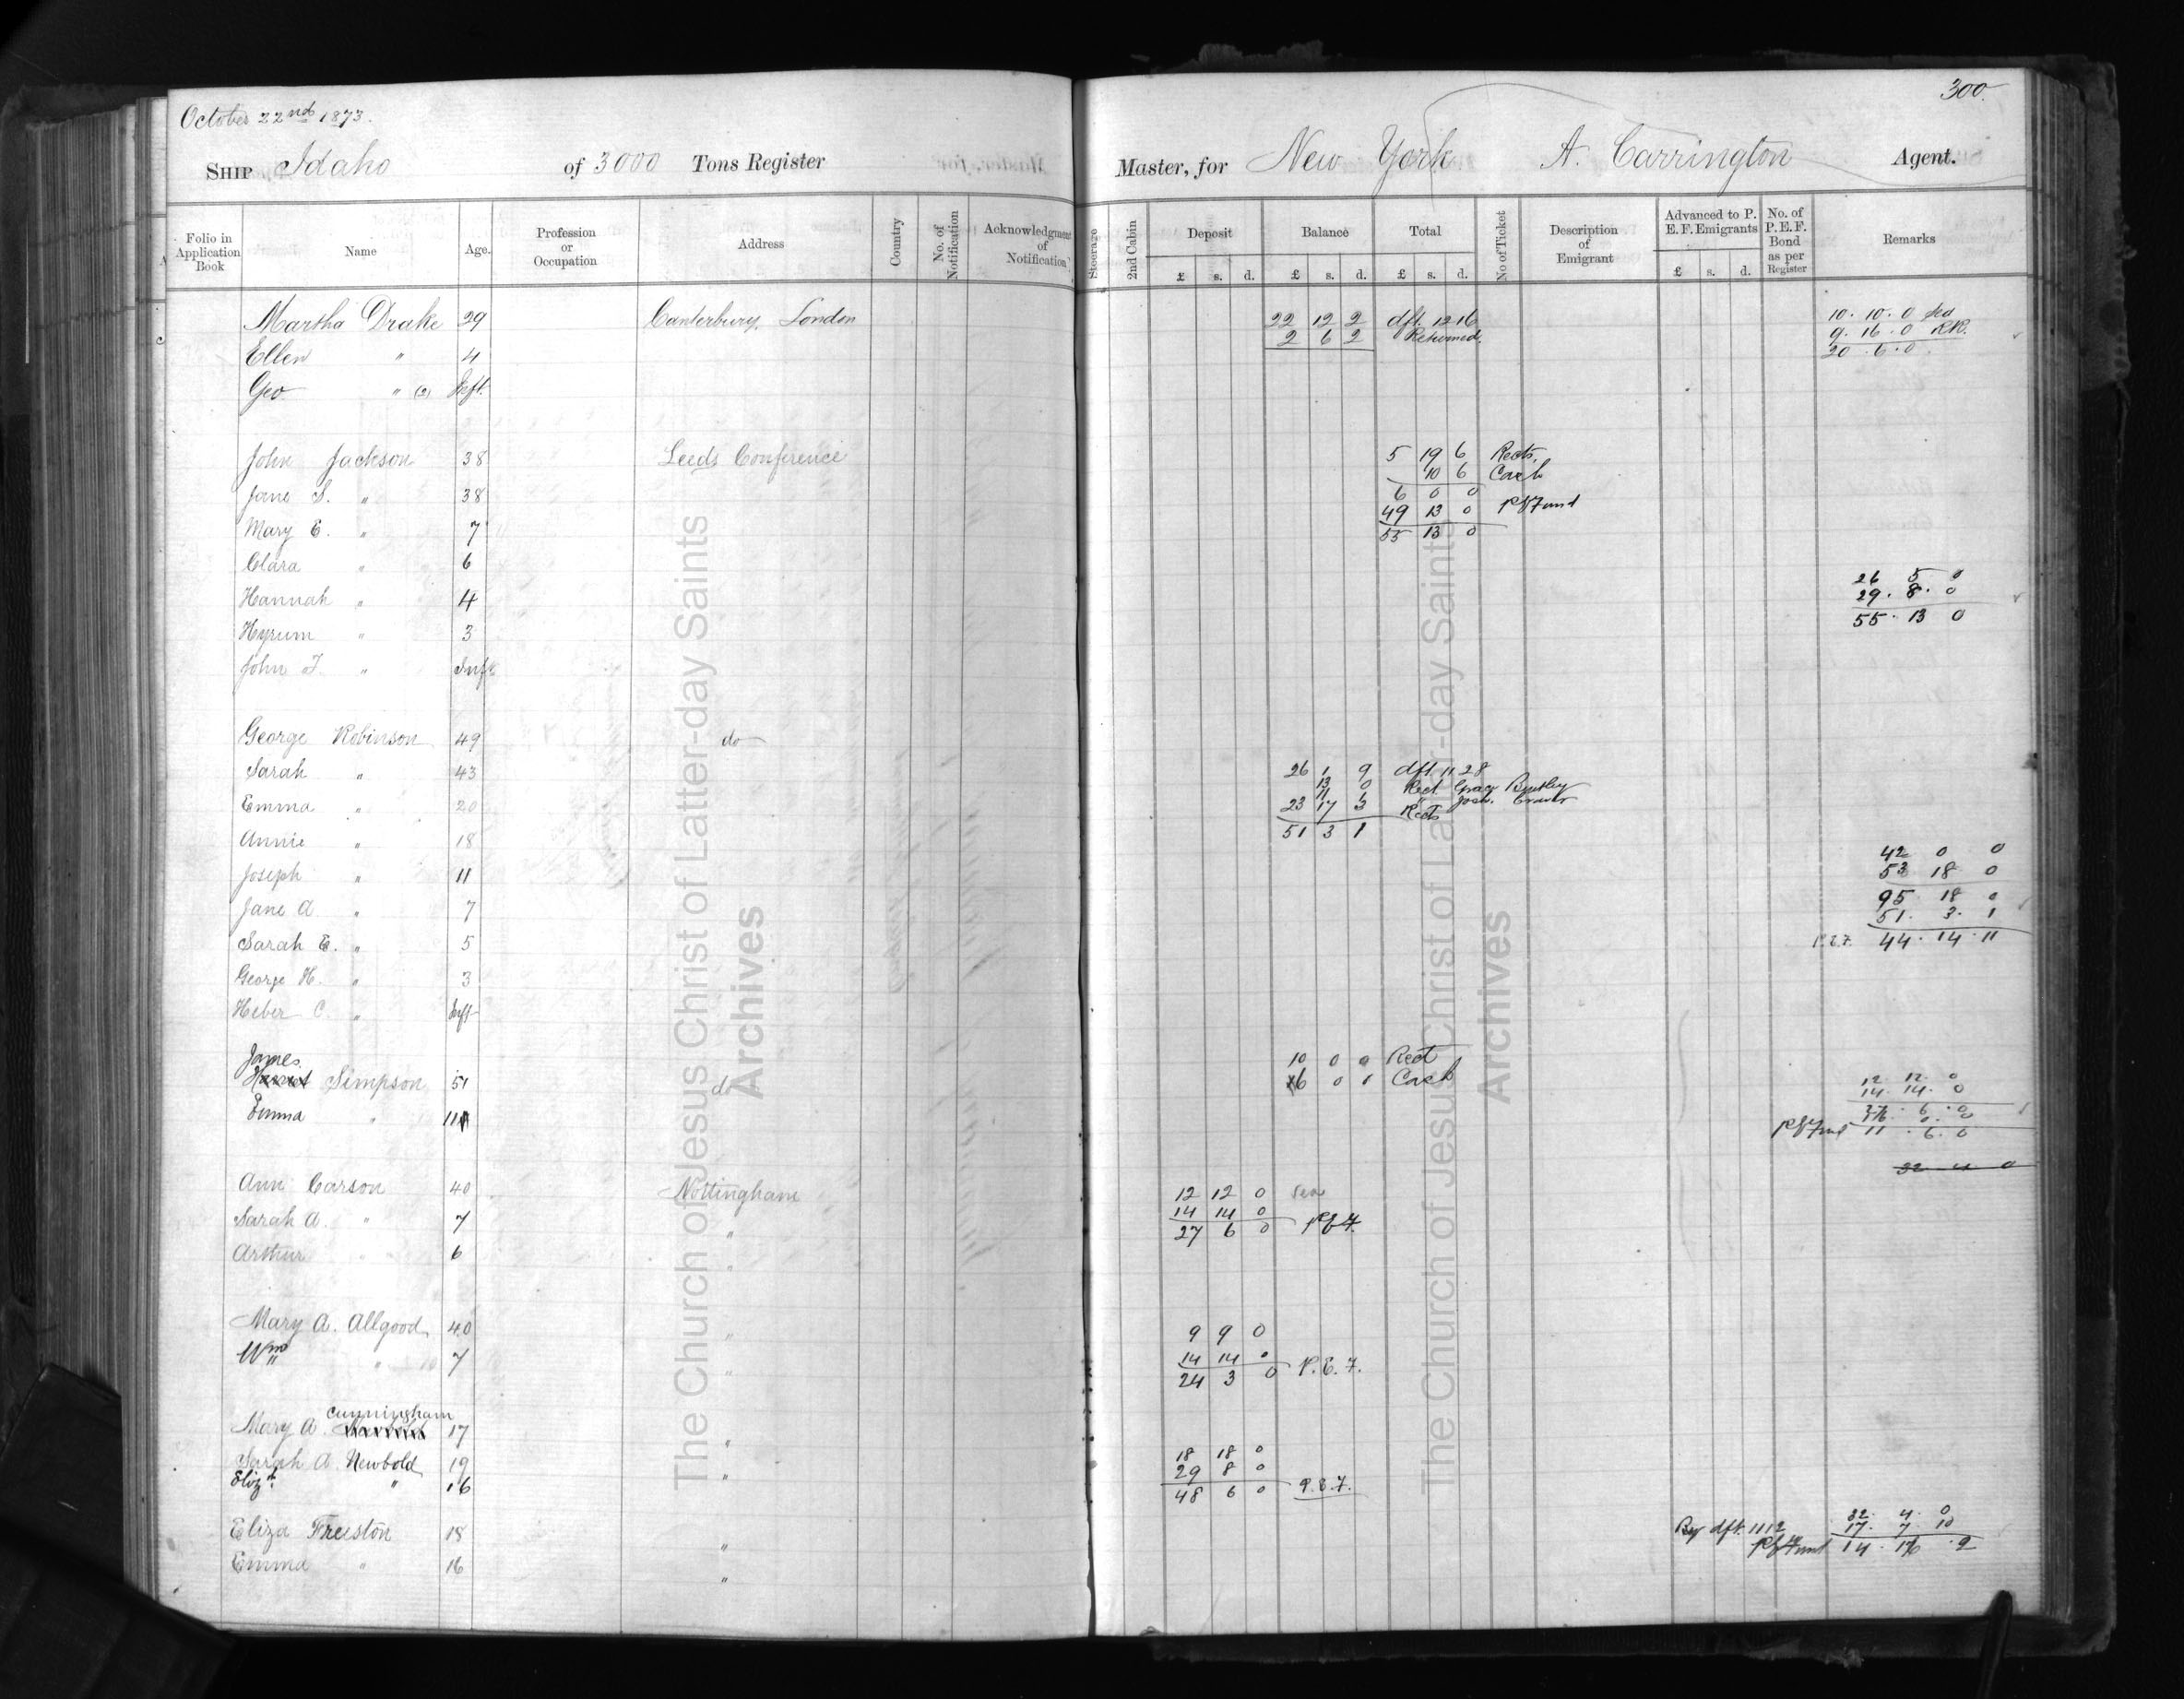 300.
October 22nd 1873.
SHIP Idaho of 3000 Tons Register Master, for New York A. Carrington Agent.
Folio in Application Book Name Age. Profession or Occupation Address Country No. of Notification Acknowledgment of Notification Steerage 2nd Cabin Deposit Balance Total No of Ticket Description of Emigrant Advanced to P. E. F. Emigrants No. of P. E. F. Bond as per Register Remarks
£ s. d. £ s. d. £ s. d. £ s. d.
Martha Drake 29 Canterbury, London 22 12 2 dft. 1216 10. 10. 0 Sea
2 6 2 Returned. 9. 16. 0 RR.
Ellen " 4 20. 6. 0
Geo " (2) Inft.
John Jackson 38 Leeds Conference 5 19 6 Rects.
10 6 Cash
Jane S. " 38 6 0 0
49 13 0 P E Fund
Mary E. " 7 55 13 0
Clara " 6 26 5 0
Hannah " 4 29. 8. 0
Hyrum " 3 55. 13 0
John T. " Inft
George Robinson 49 do
Sarah " 43 26 1 9 dft. 1128
13 0 Rect. Grace
11
Emma " 20 23 17 3 Rects
51 3 1
Annie " 18 42 0 0
Joseph " 11 53 18 0
95 18 0
Jane A " 7 51. 3. 1
Sarah E. " 5 P.E.F. 44. 14. 11
George H. " 3
Heber C. " Inft
James
Simpson 51 do 10 0 0 Rect
6 0 0 Cash 12 12. 0
14. 14. 0
Emma " 11
P E Fund 11. 6. 0
32 4 0
Ann Carson 40 Nottingham 12 12 0 Sea
Sarah A. " 7 " 14 14 0
27 6 0 P E F.
Arthur " 6 "
Mary A. Allgood 40 " 9 9 0
Wm " 7 " 14 14 0
24 3 0 P. E. F.
Cunningham
Mary A. 17 "
Sarah A. Newbold 19 " 18 18 0
Elizth. " 16 29 8 0
48 6 0 P.E.F.
Eliza Freeston 18 " 32. 4. 0
By dft. 1112 17. 7. 10
Emma " 16 " P E Fund 14. 16. 2
The Church of Jesus Christ of Latter-day Saints
Archives
The Church of Jesus Christ of Latter-day Saints
Archives